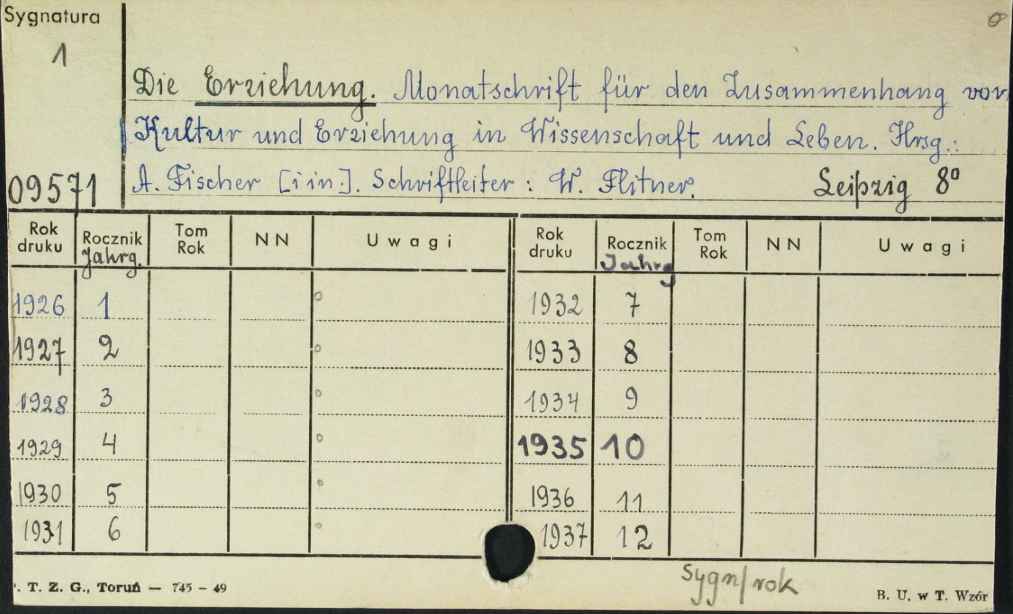 Sygnatura
1
Die Erziehung. Monatschrift für den Zusammenhang von
Kultur und Erziehung in Wissenschaft und Leben. Hrsg.:
09571 A. Fischer [i in.]. Schriftleiter: W. Flitner. Leipzig 8°
Rok druku Rocznik Jahrg. Tom Rok NN Uwagi Rok druku Rocznik Jahrg Tom Rok NN Uwagi
1926 1 1932 7
1927 2 1933 8
1928 3 1934 9
1929 4 1935 10
1930 5 1936 11
1931 6 1937 12
Sygn/rok
. T. Z. G., Toruń — 745 - 49 B. U. w T. Wzór